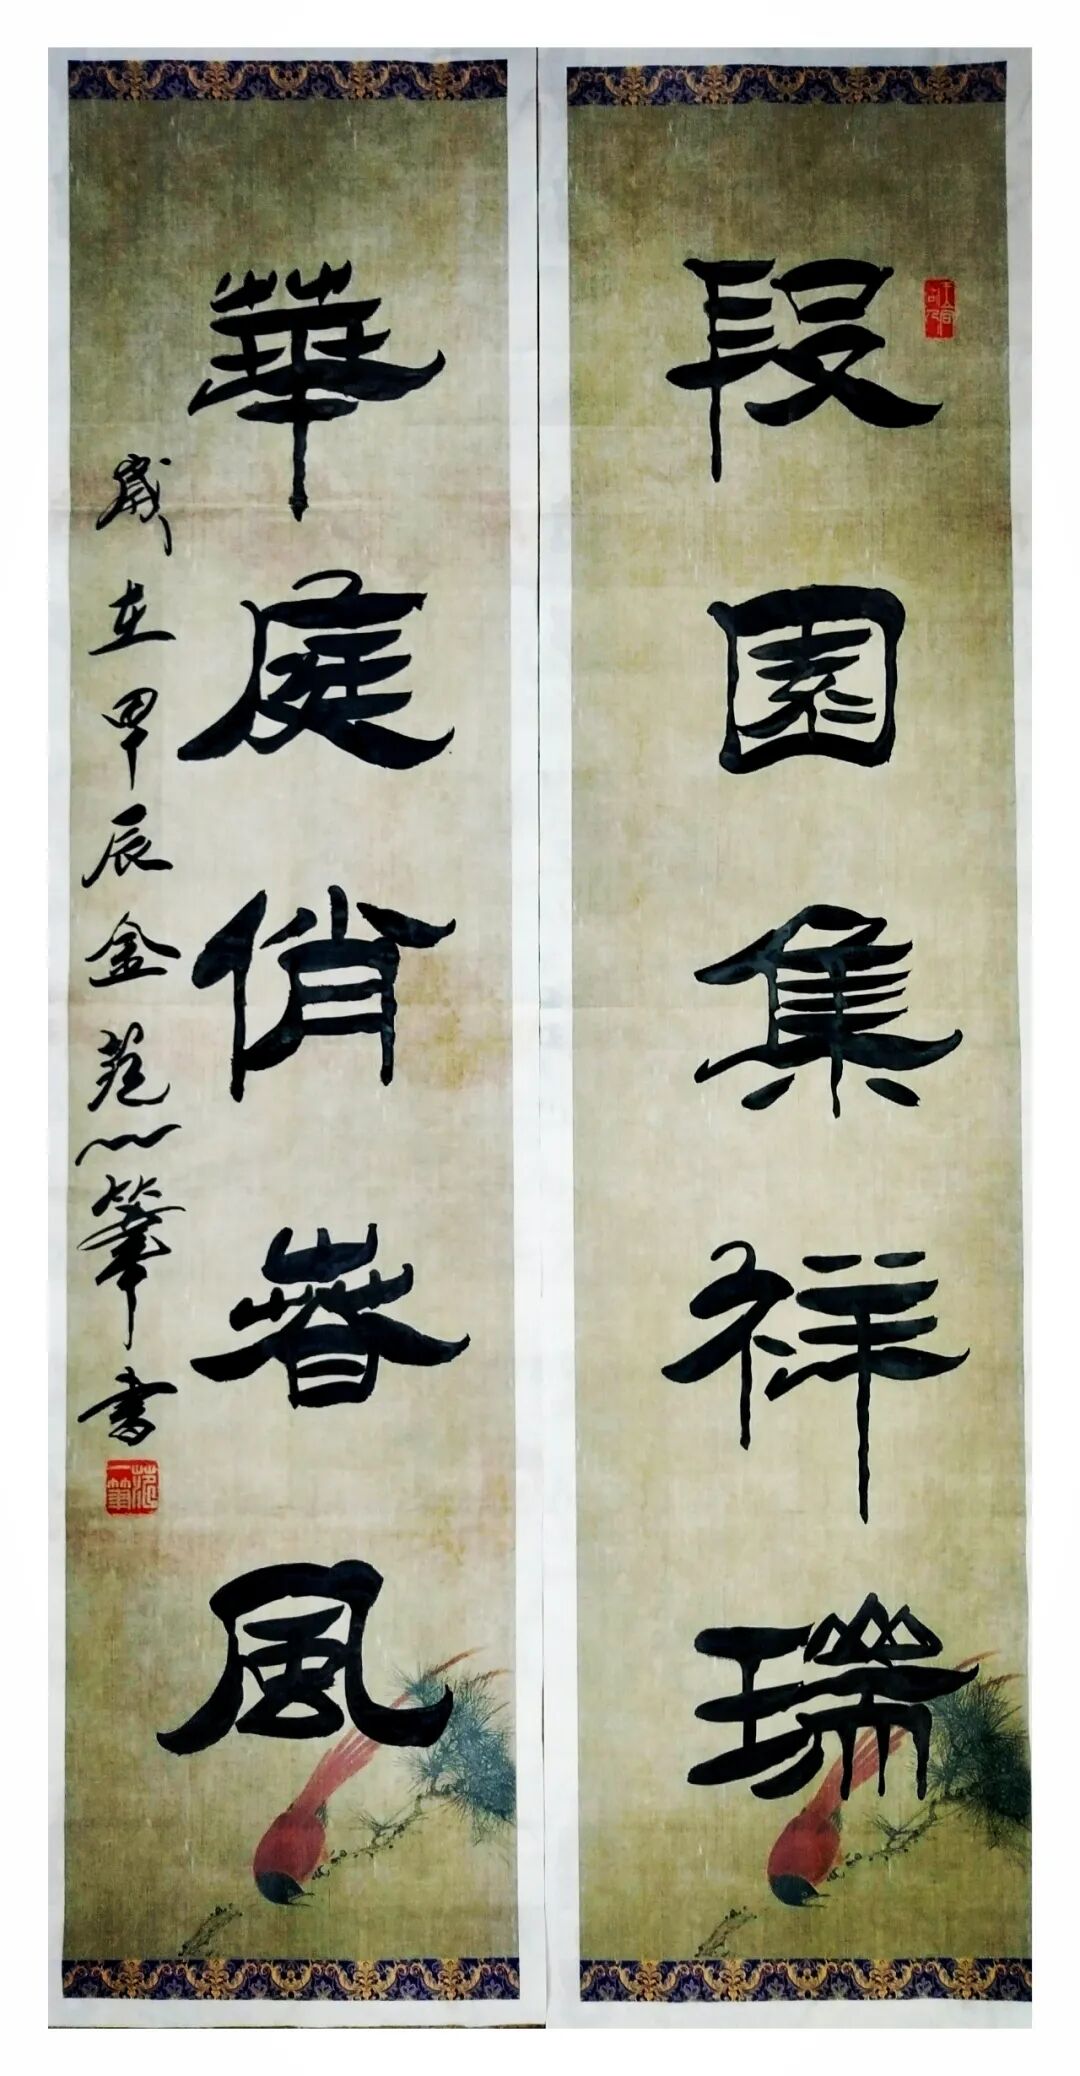 段園集祥瑞
華庭俏春風
歲在甲辰金范一筆書
范一筆